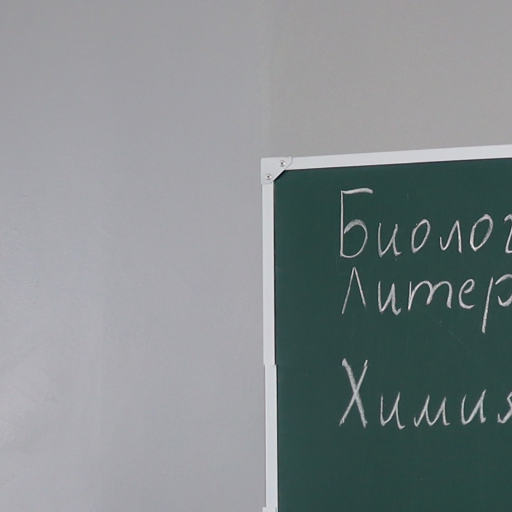 Биолог
Литер
Химия